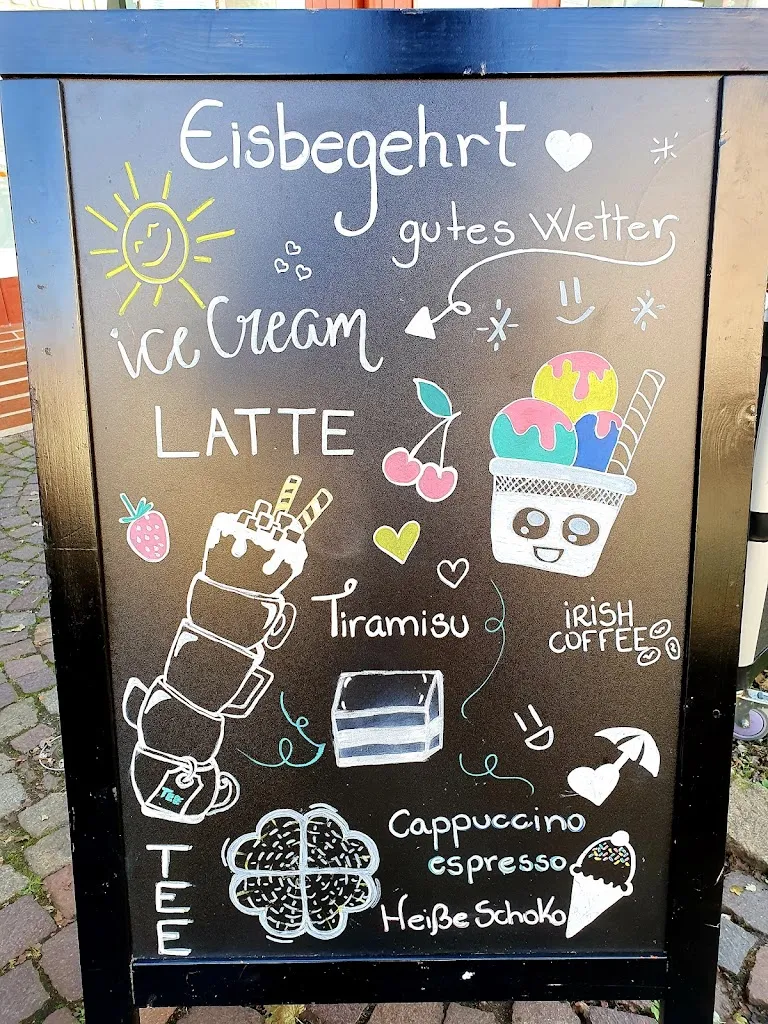 Eisbegehrt
gutes Wetter
ice Cream
LATTE
Tiramisu
IRISH
COFFEE
TEE
Cappuccino
espresso
Heiße Schoko
TEE